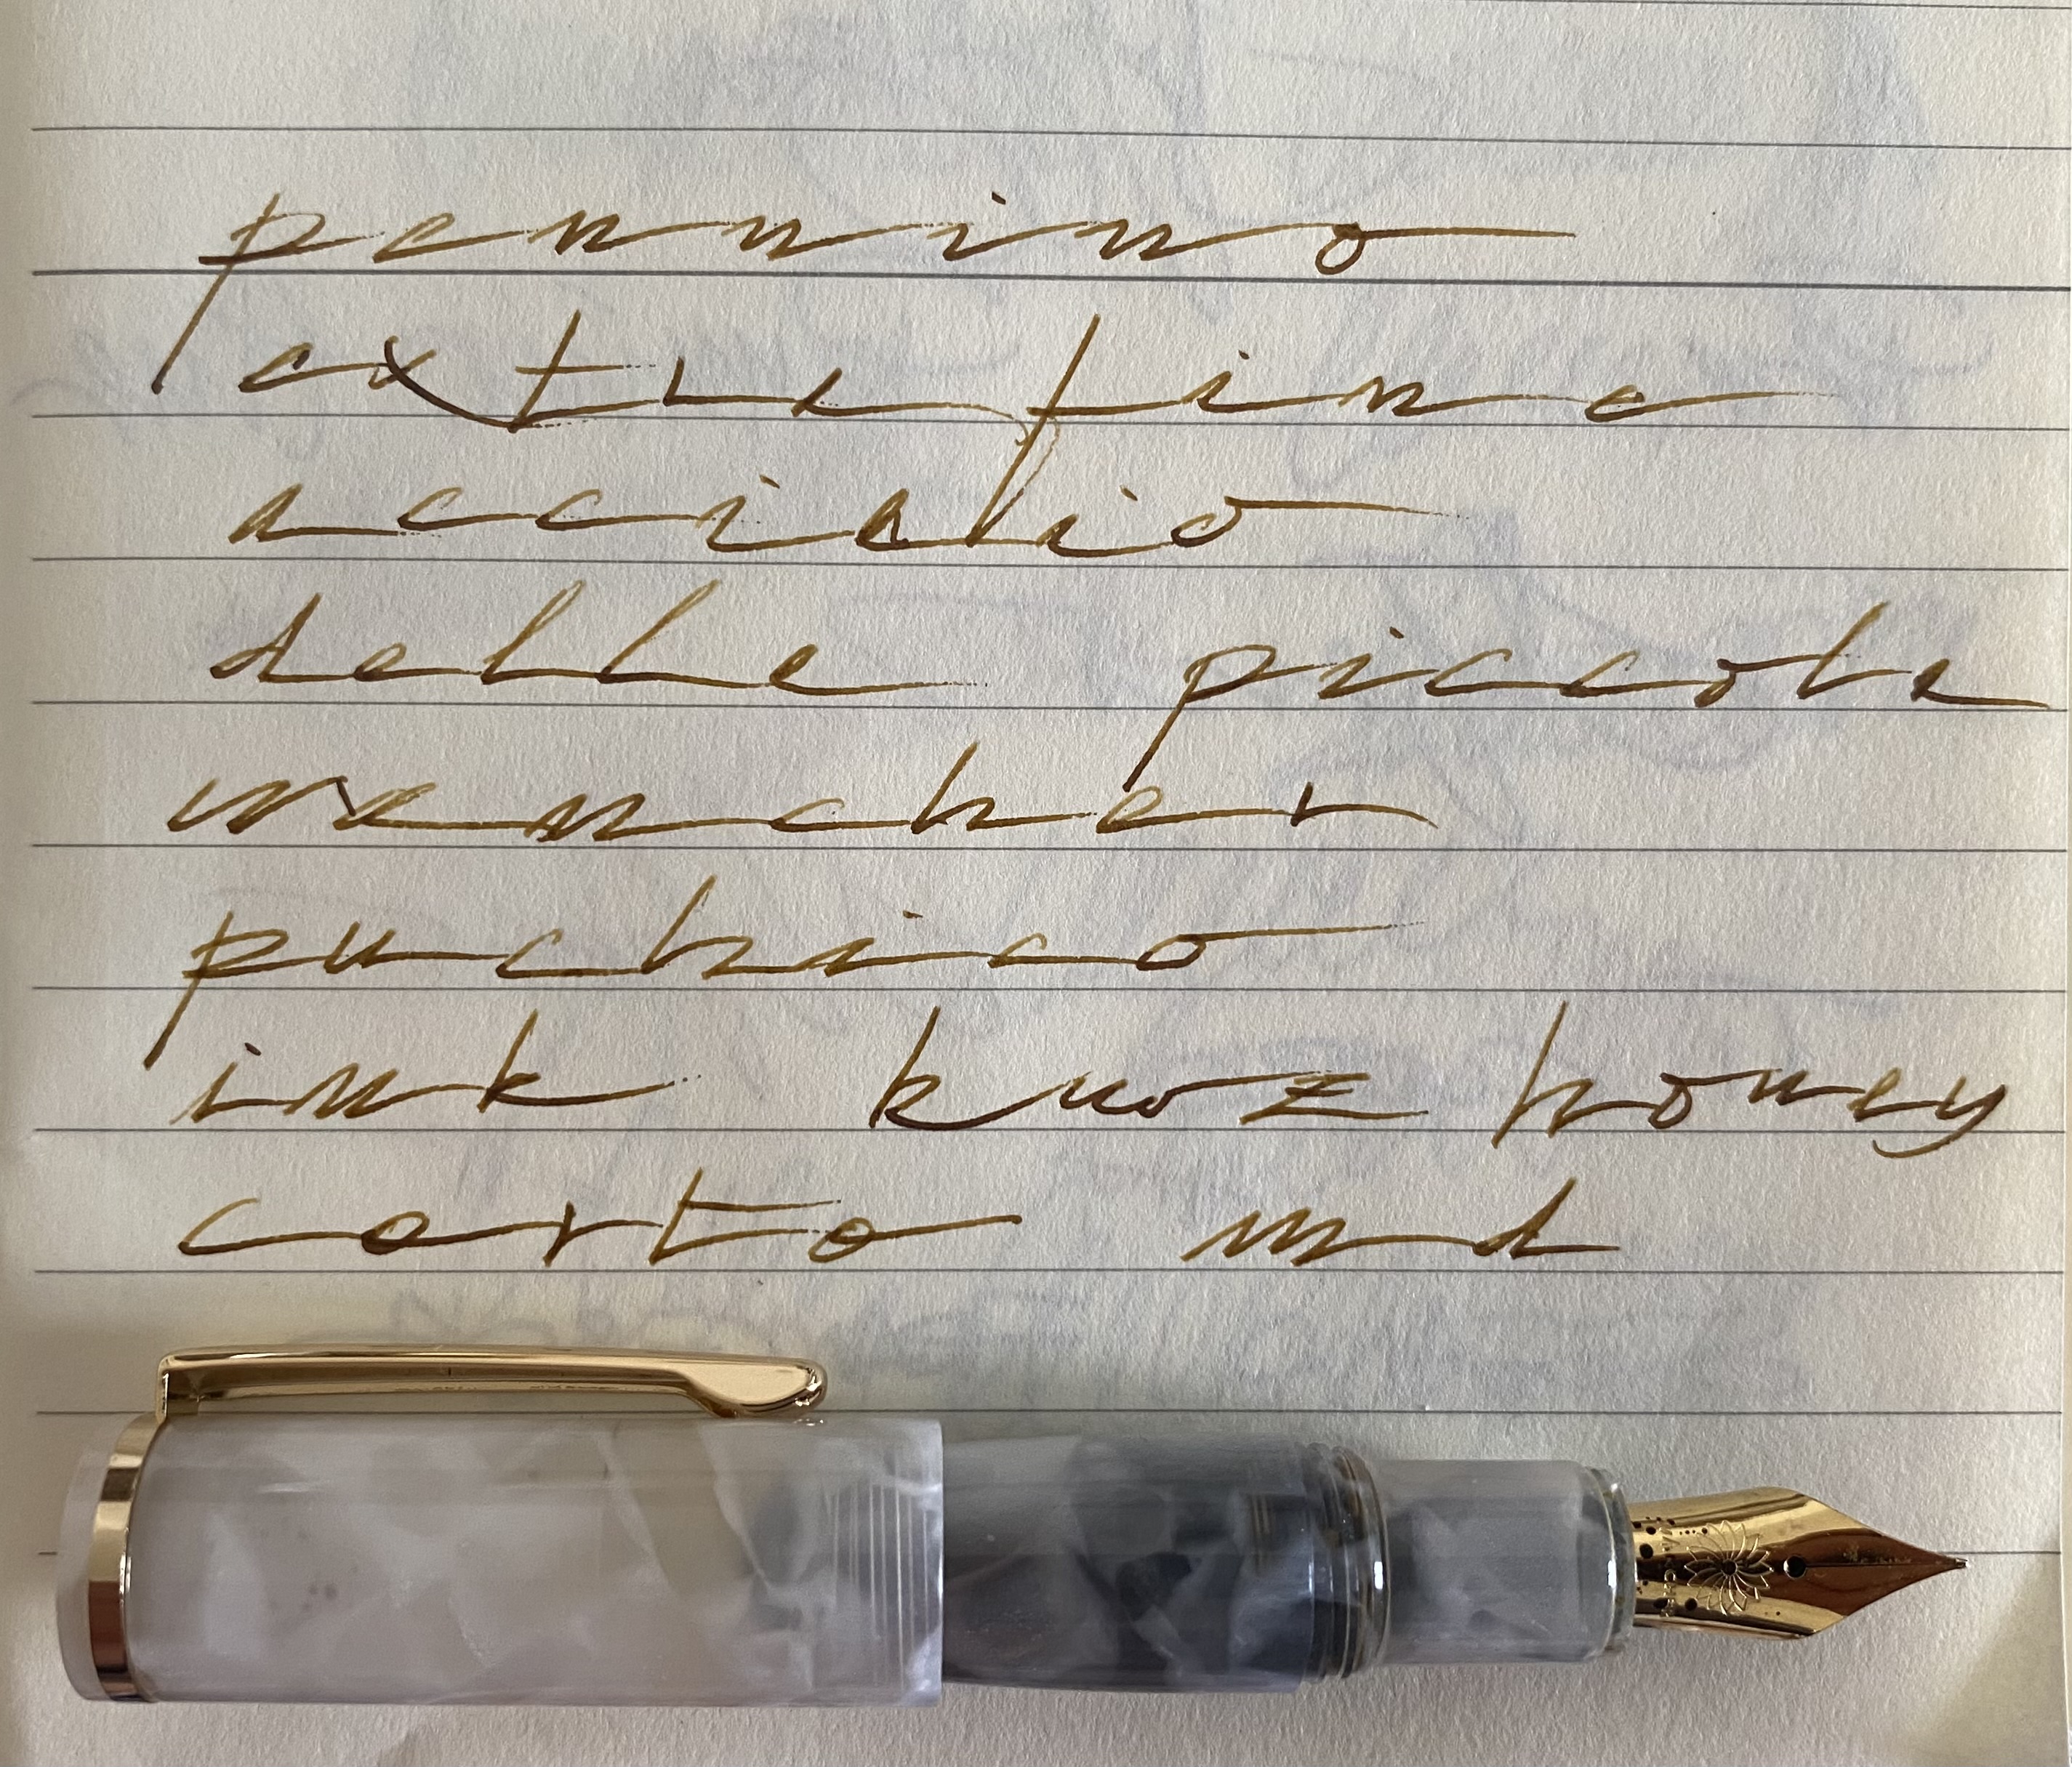 pennino
extra fine
acciaio
delle piccola
wancher
puchico
ink kwz honey
carta md